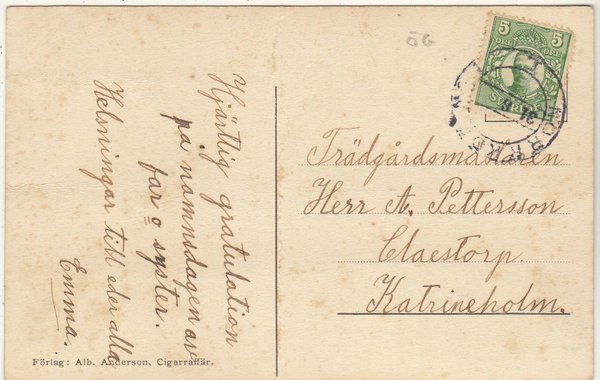 Hjärtlig gratulation
på namnsdagen av
far o syster.
Helsningar till eder alla
Emma.
Förlag: Alb. Anderson, Cigarraffär.
ÖG
5 5
ÖRE ÖRE
Trädgårdsmästaren
Herr A. Pettersson
Claestorp.
Katrineholm.